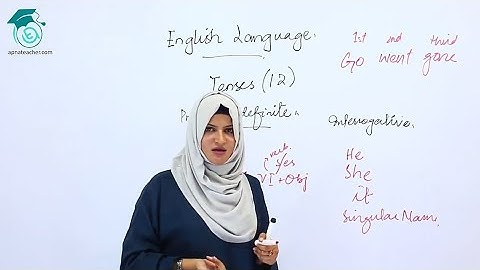 apnateacher.com
English Language.
1st 2nd third
Go went gone
Tenses (12)
definite.
Interrogative.
verb s/es
VI + Obj
He
She
it
Singular Nam.